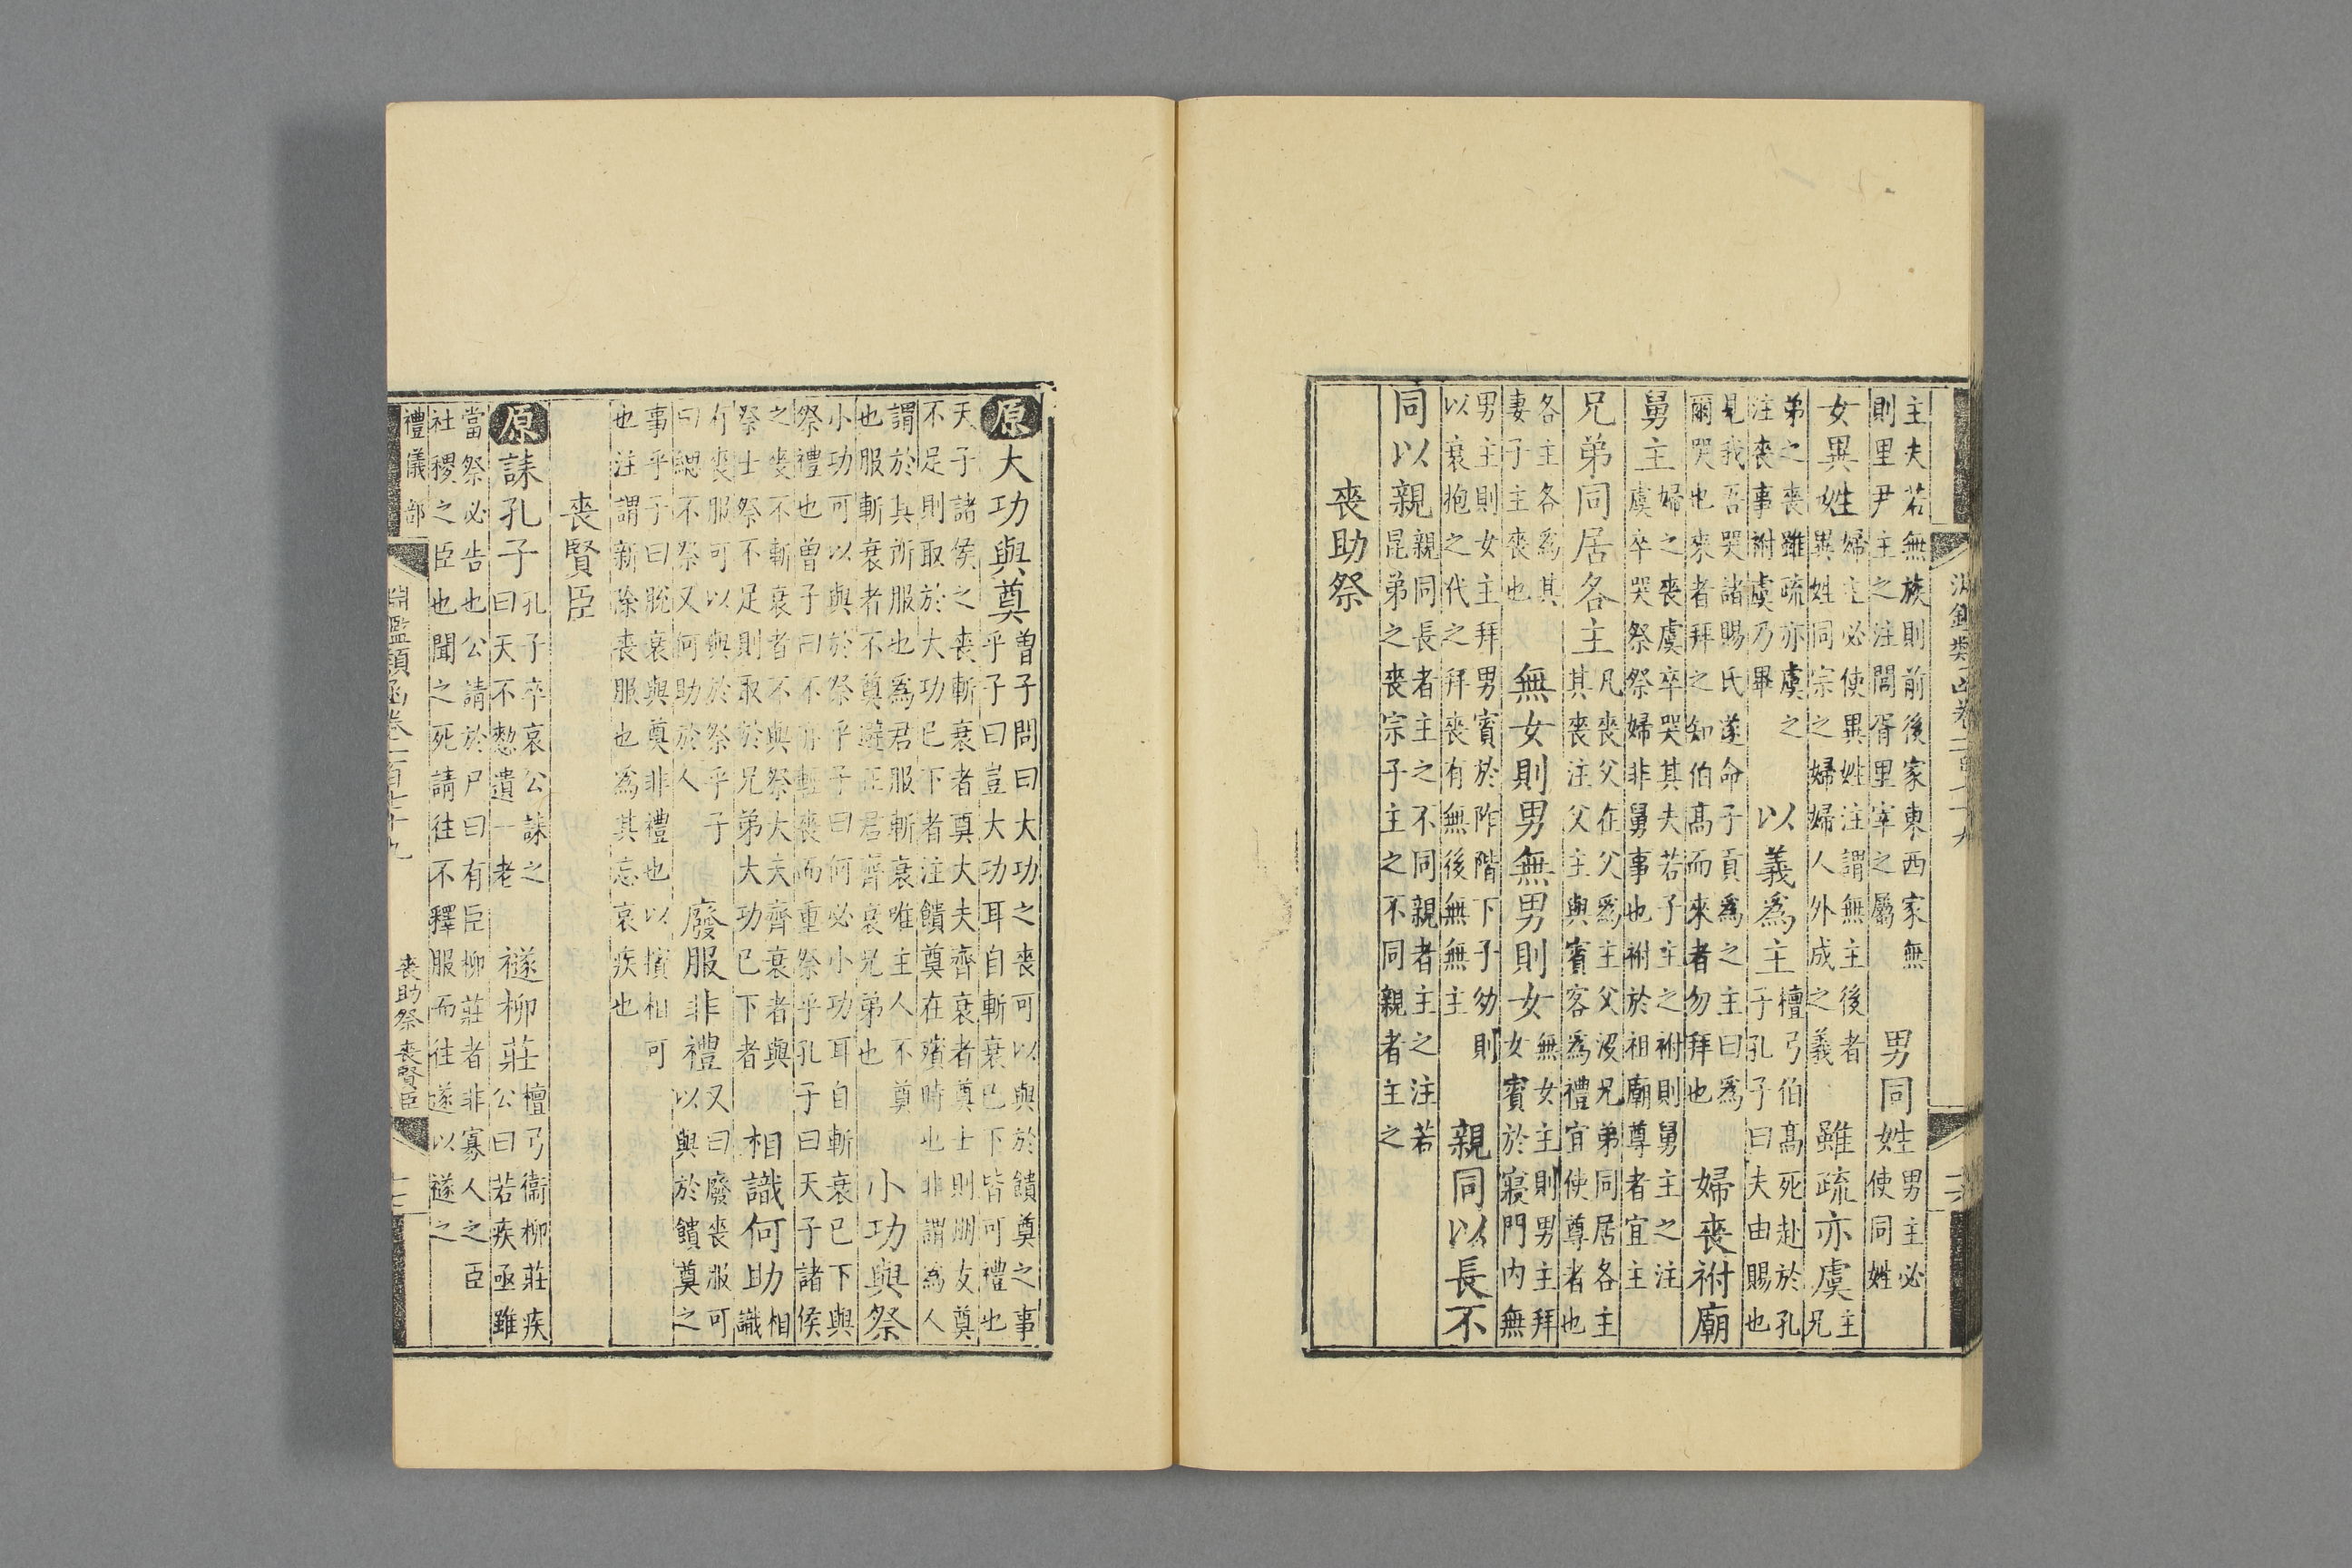 淵鑑類函卷二百七十九
主夫若無族則前後家東西家無則里尹主之注閭胥里宰之屬 男同姓男主必使同姓
女異姓婦主必使異姓注謂無主後者異姓同宗之婦婦人外成之義 雖疏亦虞主兄
弟之喪雖疏亦虞之注喪事祔虞乃畢 以義爲主檀弓伯髙死赴於孔子孔子曰夫由賜也
見我吾哭諸賜氏遂命子貢爲之主曰爲爾哭也來者拜之知伯髙而來者勿拜也 婦喪祔廟
舅主婦之喪虞卒哭其夫若子主之祔則舅主之注虞卒哭祭祭婦非舅事也祔於祖廟尊者宜主
兄弟同居各主凡喪父在父爲主父沒兄弟同居各主其喪注父主與賓客爲禮宜使尊者也
各主各爲其妻子主喪也 無女則男無男則女無女主則男主拜女賓於寢門内無
男主則女主拜男賓於阼階下子幼則以衰抱之代之拜喪有無後無無主 親同以長不
同以親親同長者主之不同親者主之注若昆弟之喪宗子主之不同親者主之
喪助祭
原大功與奠曾子問曰大功之喪可以與於饋奠之事乎子曰豈大功耳自斬衰已下皆可禮也
天子諸侯之喪斬衰者奠大夫齊衰者奠士則朋友奠不足則取於大功已下者注饋奠在殯時也非謂爲人
謂於其所服也爲君服斬衰唯主人不奠也服斬衰者不奠避正君齊衰兄弟也 小功與祭
小功可以與於祭乎子曰何必小功耳自斬衰已下與祭禮也曾子曰不亦輕喪而重祭乎孔子曰天子諸侯
之喪不斬衰者不與祭大夫齊衰者與祭士祭不足則取於兄弟大功已下者 相識何助相識
有喪服可以與於祭乎子曰緦不祭又何助於人 廢服非禮又曰廢喪服可以與於饋奠之
事乎子曰脫衰與奠非禮也以擯相可也注謂新除喪服也爲其忘哀疾也
喪賢臣
原誄孔子孔子卒哀公誄之曰天不憗遺一老 襚柳莊檀弓衞柳莊疾公曰若疾亟雖
當祭必告也公請於尸曰有臣柳莊者非寡人之臣社稷之臣也聞之死請往不釋服而往遂以襚之
禮儀部 淵鑑類函卷二百七十九 喪助祭 喪賢臣